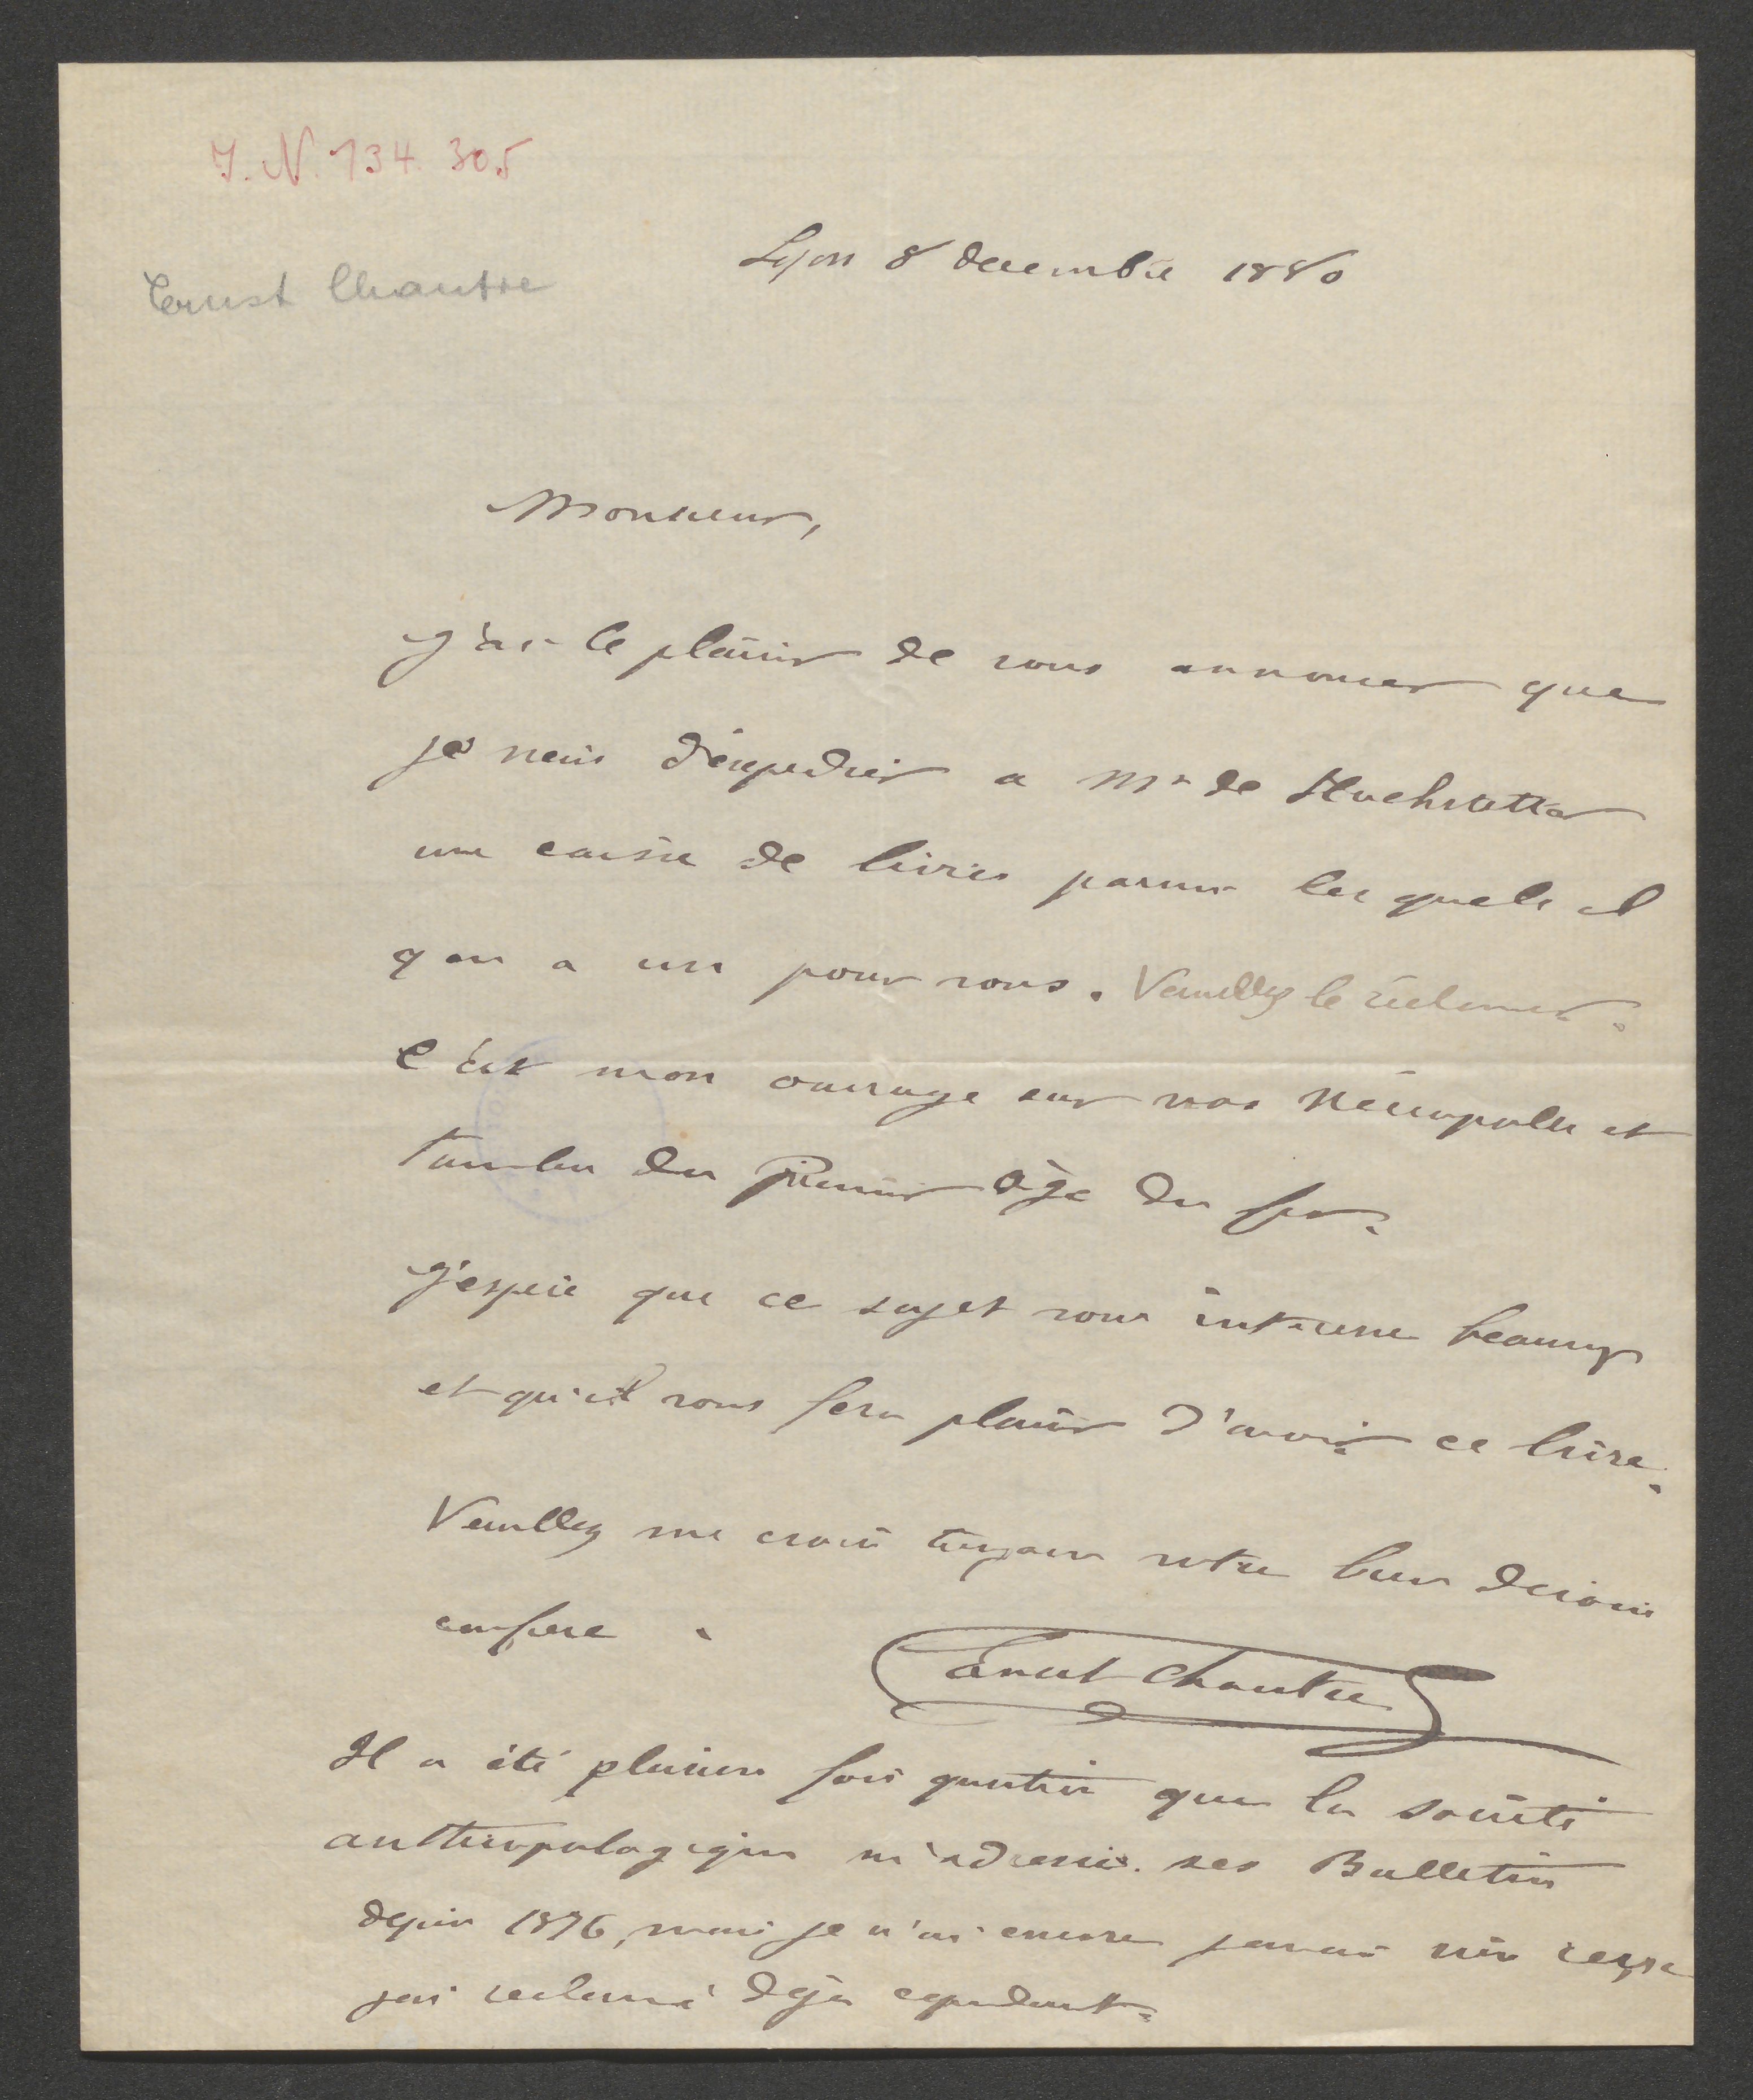 I. N. 134.305
Ernest Chantre
Lyon 8 decembre 1880
Monsieur,
J'ai le plaisir de vous annoncer que
je viens d'expedier a Mr de Hochstetter
une caisse de livres parmi les quels il
y en a un pour vous. Veuillez le réclamer.
C'est mon ouvrage sur nos Nécropoles et
Tumulus du Premier âge du fer.
J'espère que ce sujet vous interesse beaucoup
et qu'il vous fera plaisir d'avoir ce livre.
Veuillez me croire toujours votre bien devoué
confrere.
Ernest Chantre
Il a été plusieurs fois question que la société
anthropologique m'adresse ses Bulletins
depuis 1876, mais je n'ai encore jamais rien reçu
j'ai reclamé déjà cependant.